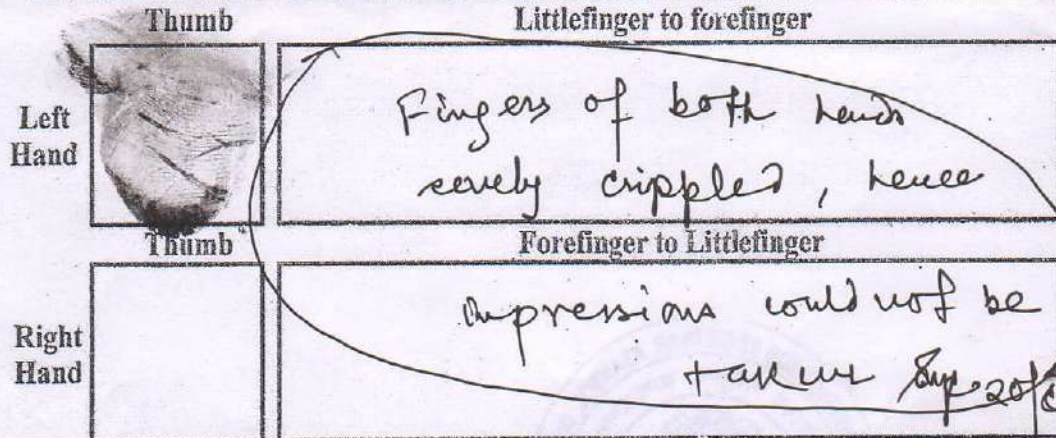 Thumb Littlefinger to forefinger
Left
Hand
Fingers of both hands
severely crippled, hence
Thumb Forefinger to Littlefinger
Right
Hand
impressions could not be
taken